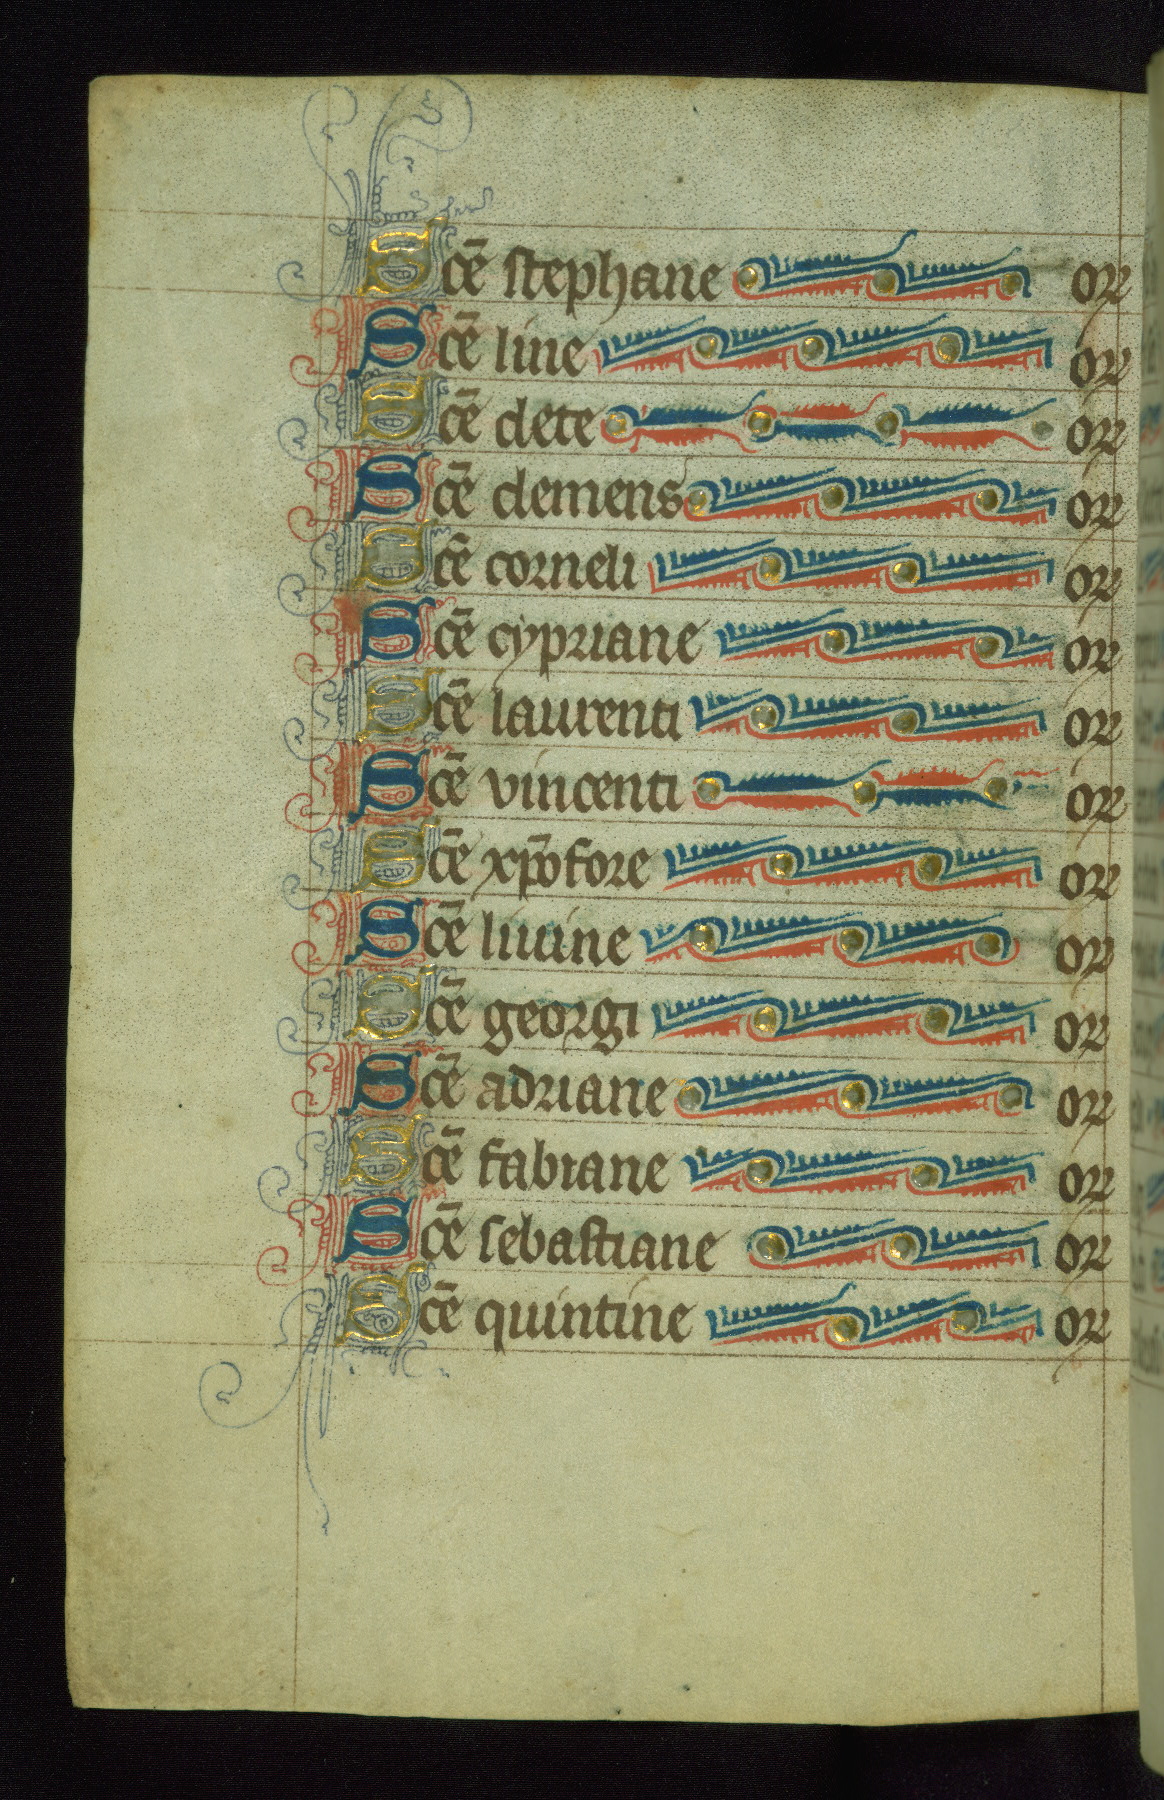 Scē stephane or
Scē line or
Scē clete or
Scē clemens or
Scē corneli or
Scē cypriane or
Scē laurenti or
Scē vincenti or
Scē xp̄ofore or
Scē liuine or
Scē georgi or
Scē adriane or
Scē fabiane or
Scē sebastiane or
Scē quintine or